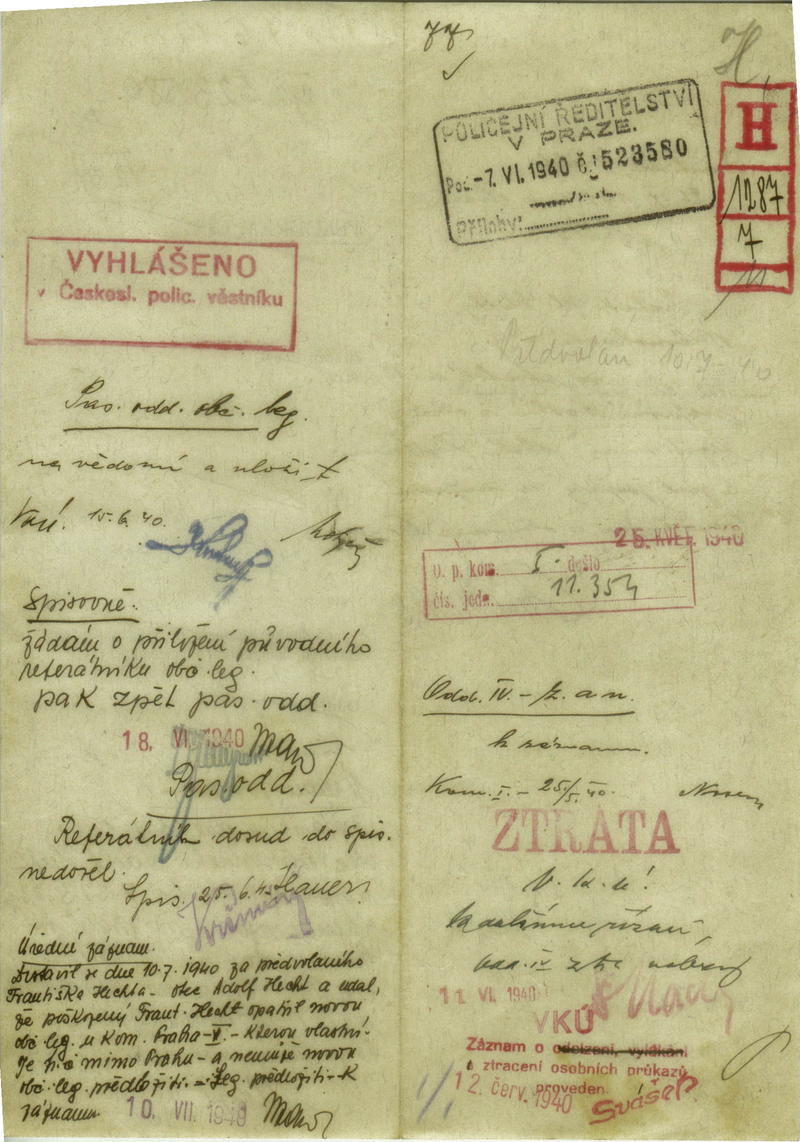 VYHLÁŠENO
v Českosl. polic. věstníku
Pas. odd. obč. leg.
na vědomí a uložit
15.6.40.
Spisovně.
žádám o přiložení původního
referátníku obč. leg.
pak zpět pas. odd.
18. VI. 1940
Pas. odd.
Referátník dosud do spis.
nedošel.
Spis. 25. 6. 40
Úřední záznam.
Dostavil se dne 10.7.1940 za předvolaného
Františka Hechta - otec Adolf Hecht a udal,
že poškozený Frant. Hecht opatřil novou
obč. leg. u Kom. Praha-II. - kterou vlastní.
Je mimo Prahu - a nemůže novou
obč. leg. předložiti - leg. předložiti - K
záznamu
10. VII. 1940
77
H
POLICEJNÍ ŘEDITELSTVÍ
V PRAZE.
Pod. -7. VI. 1940 čj 523580
Přílohy:
H
1287
7
11
Předvolán 10.7.40
25. KVĚT. 1940
U. p. kom. I. došlo
čís. jedn. 11.354
Odd. IV. - z. a n.
k záznamu.
Kom. I. - 25/5. 40.
ZTRÁTA
K dalšímu řízení,
odd. IV
11. VI. 1940
VKÚ
Záznam o odcizení, vylákání
a ztracení osobních průkazů
proveden.
12. červ. 1940
Svášek